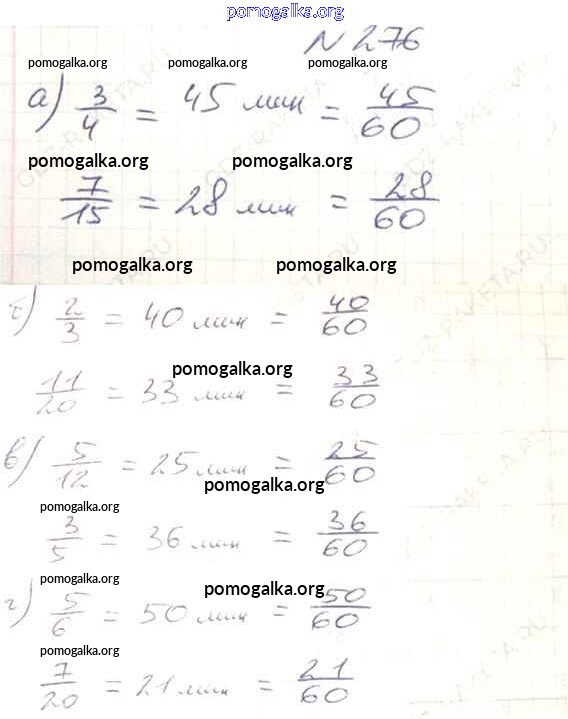 pomogalka.org
N 276
pomogalka.org pomogalka.org pomogalka.org
а) 3/4 = 45 мин = 45/60
pomogalka.org pomogalka.org
7/15 = 28 мин = 28/60
pomogalka.org pomogalka.org
б) 2/3 = 40 мин = 40/60
pomogalka.org
11/20 = 33 мин = 33/60
в) 5/12 = 25 мин = 25/60
pomogalka.org
pomogalka.org
3/5 = 36 мин = 36/60
pomogalka.org
pomogalka.org
г) 5/6 = 50 мин = 50/60
pomogalka.org
7/20 = 21 мин = 21/60